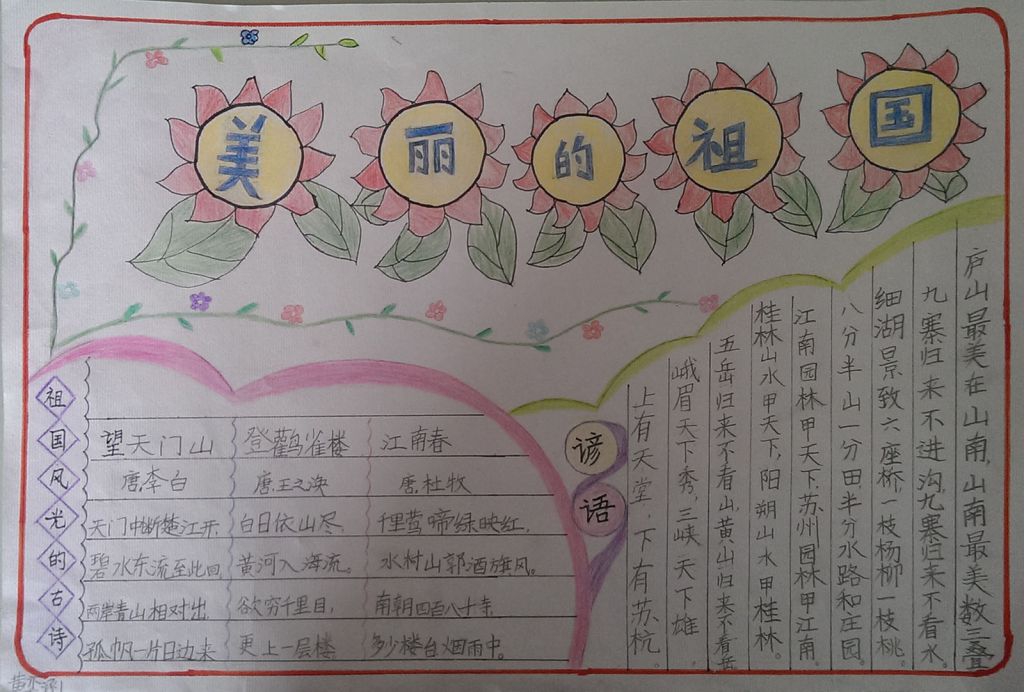 美丽的祖国
祖国风光的古诗
望天门山
唐李白
天门中断楚江开,
碧水东流至此回,
两岸青山相对出,
孤帆一片日边来
登鹳雀楼
唐,王之涣
白日依山尽,
黄河入海流。
欲穷千里目,
更上一层楼
江南春
唐,杜牧
千里莺啼绿映红,
水村山郭酒旗风。
南朝四百八十寺,
多少楼台烟雨中。
谚语
庐山最美在山南,山南最美数三叠
九寨归来不进沟,九寨归来不看水。
细湖景致六座桥,一枝杨柳一枝桃。
八分半山一分田半分水路和庄园。
江南园林甲天下,苏州园林甲江南。
桂林山水甲天下,阳朔山水甲桂林。
五岳归来不看山,黄山归来不看岳
峨眉天下秀,三峡天下雄,
上有天堂,下有苏杭。